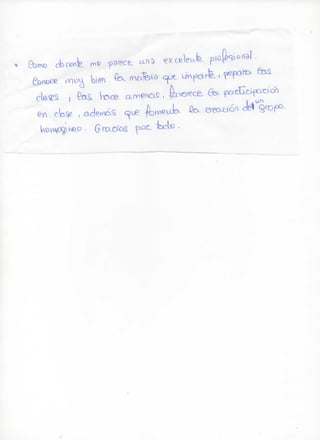 * Como docente me parece una excelente profesional.
Conoce muy bien la materia que imparte, prepara las
clases y las hace amenas, favorece la participación
en clase, además que fomenta la creación del un grupo
homogéneo. Gracias por todo.